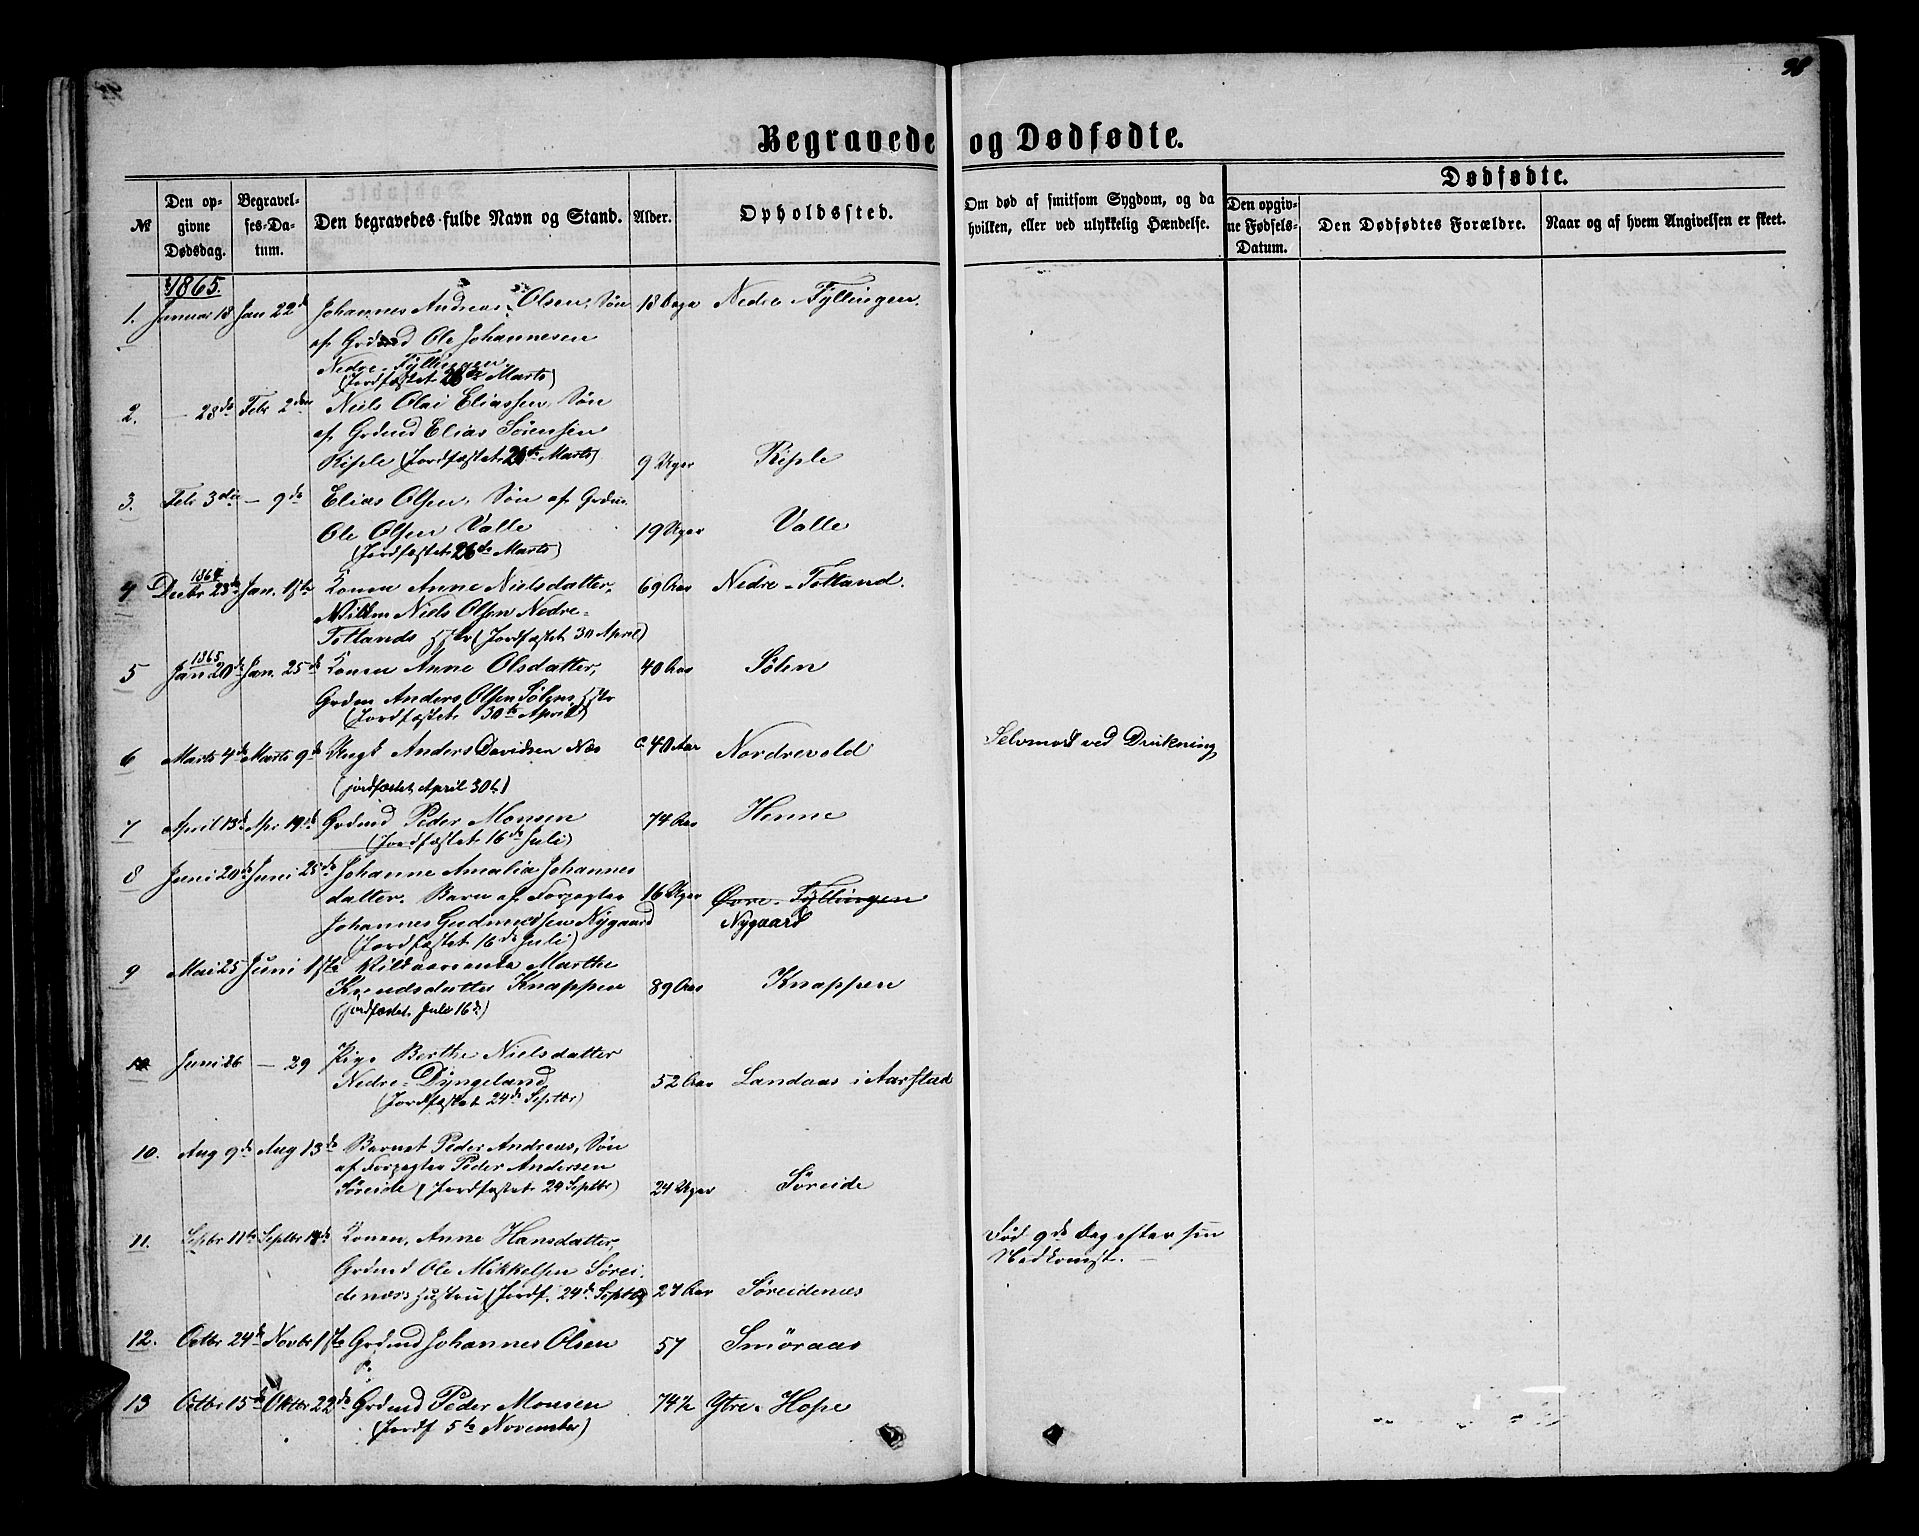 98
Begravede og Dødfødte.
№
Den opgivne Dødsdag.
Begravelses-Datum.
Den begravedes fulde Navn og Stand.
Alder.
Opholdssted.
Om død af smitsom Sygdom, og da hvilken, eller ved ulykkelig Hændelse.
Dødfødte.
Den opgivne Fødsels-Datum.
Den Dødfødtes Forældre.
Naar og af hvem Angivelsen er skeet.
1865.
1. Januar 18 Jan 22de Johannes Andreas Olsen, Søn 18 Dage Nedre Fyllingen.
af Grdmd Ole Johannesen
Nedre-Fyllingen
(Jordfæstet 26de Marts)
2. — 28de Febr 2den Niels Olai Eliassen, Søn
af Grdmd Elias Sørensen
Riple (Jordfæstet 26de Marts) 9 Uger Riple
3. Feb 3die — 9de Elias Olsen, Søn af Grdm.
Ole Olsen Valle 19 Uger Valle
(Jordfæstet 26de Marts)
1864
4 Decbr 28de Jan. 1ste Konen Anne Nielsdatter, 69 Aar Nedre-Totland.
Niels Olsen Nedre-
Totlands Hstr (Jordfæstet 30 April)
1865
5 Jan 20de Jan. 25de Konen Anne Olsdatter, 40 Aar Sølen
Grdm Anders Olsen Sølens Hstr
(Jordfæstet 30te April)
6 Marts 4de Marts 9de Ungk Anders Davidsen Næs c. 40 Aar Nordrevold Selvmord ved Drukning
(jordfæstet April 30te)
7 April 13de Apr 19de Grdmd Peder Monsen 74 Aar Henne
(Jordfæstet 16de Juli)
8 Juni 20de Juni 25de Johanne Amalia Johannes
datter. Barn af Forpagter 16 Uger Øvre-Fyllingen
Johannes Gudmundsen Nygaard Nygaard
(Jordfæstet 16de Juli)
9 Mai 25 Juni 1ste Kildaarsenke Marthe
Knudsdatter Knappen 89 Aar Knappen
(jordfæstet Juli 16de)
Juni 26 — 29 Pige Berthe Nielsdatter
Nedre-Dyngeland 52 Aar Landaas i Aarstad
(Jordfæstet 24de Septbr)
10. Aug 9de Aug 13de Barnet Peder Andreas, Søn
af Forpagter Peder Andersen
Søreide (Jordfæstet 24 Septbr) 24 Uger Søreide
11. Septbr 11te Septbr 18de Konen, Anne Hansdatter, Død 9de Dag efter sin
Grdmd Ole Mikkelsen Sørei- Nedkomst. —
denæs Hustru (Jordf. 24de Septbr) 27 Aar Søreidenæs
12. Octbr 24de Novbr 1ste Grdmd Johannes Olsen 57 Smøraas
13 Octbr 15de Oktbr 22de Grdmd Peder Monsen 74½ Ytre-Hope
(Jordf 5te November)